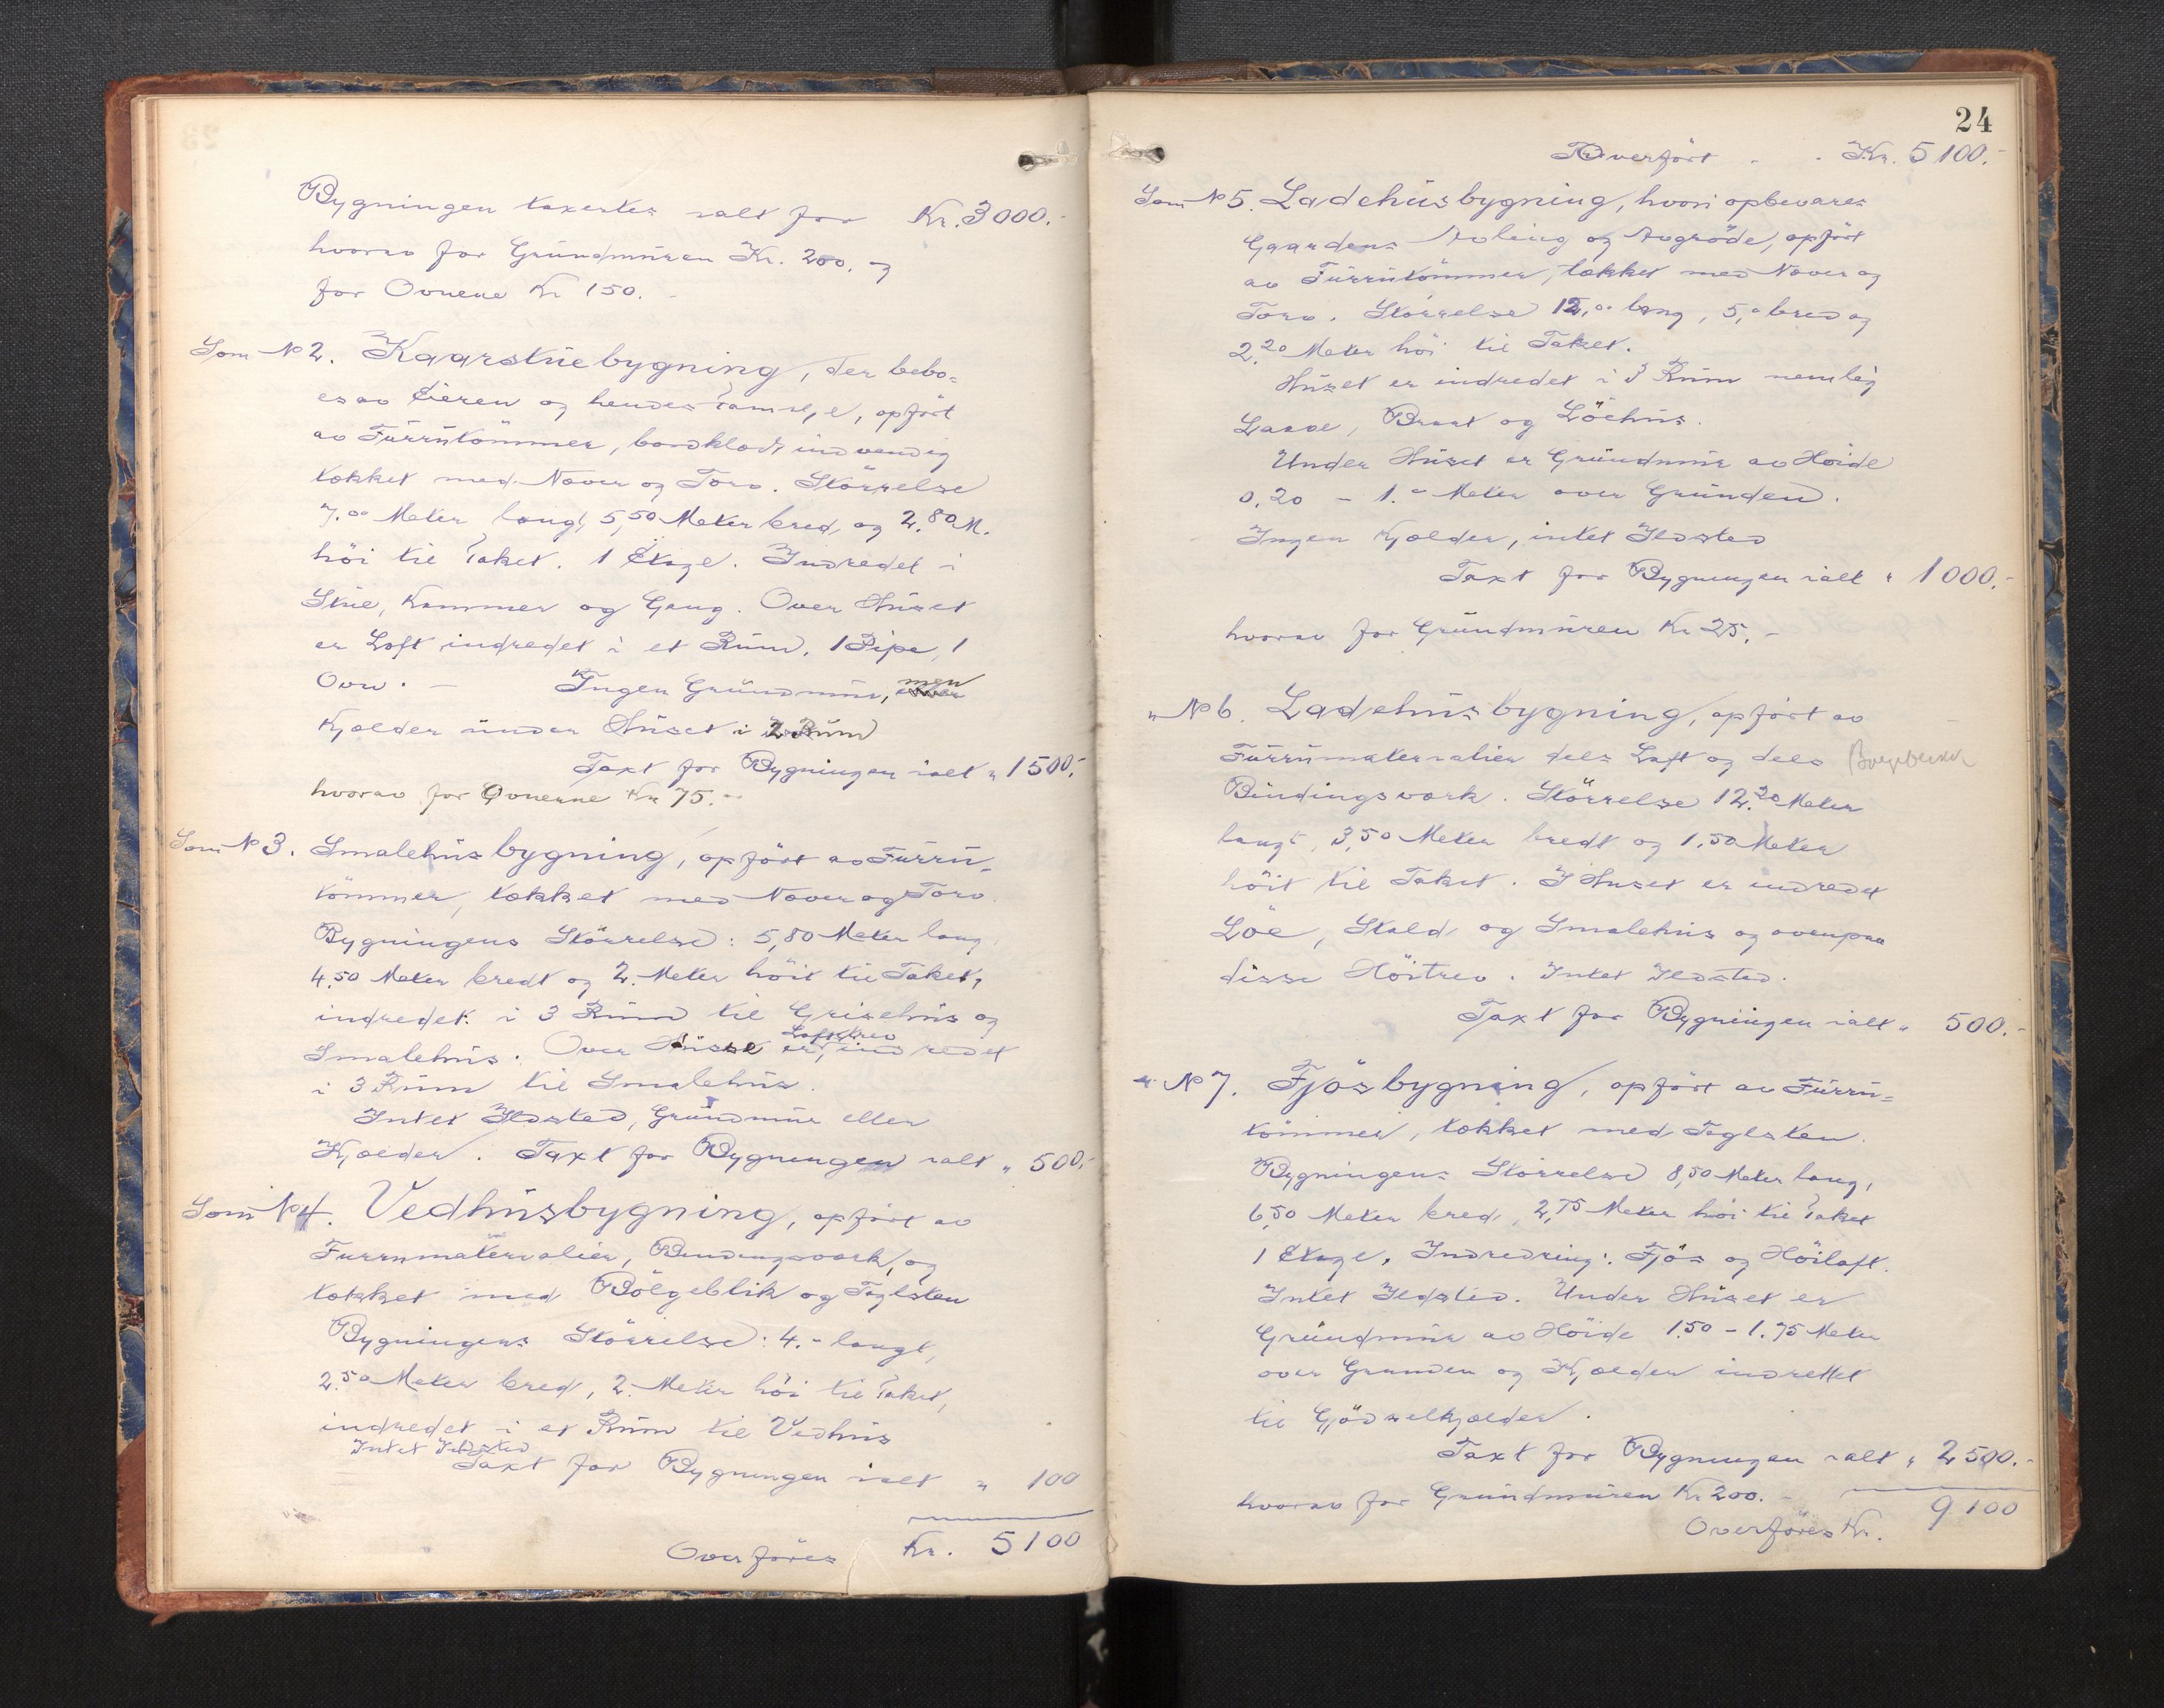 Bygningen taxertes ialt for Kr. 3000.-
hvorav for Grundmuren Kr. 200. og
for Ovnene Kr 150. -
Som No 2. Kaarstuebygning, der bebo-
es av Eieren og hendes Familje, opfört
av Furrutömmer, bordklædt indvendig
tækket med Næver og Torv. Störrelse
7,00 Meter langt, 5,50 Meter bred, og 2,80 M.
höi til Taket. 1 Etage. Indredet i
Stue, Kammer og Gang. Over Huset
er Loft indredet i et Rum. 1 Pipe, 1
Ovn. - Ingen Grundmur, men
Kjælder under Huset i 2 Rum
Taxt for Bygningen ialt " 1500.-
hvorav for Ovnerne Kr 75.-
Som No 3. Smalehusbygning, opfört av Furru-
tömmer, tækket med Næver og Torv.
Bygningens Störrelse: 5,80 Meter lang,
4,50 Meter bredt og 2.- Meter höit til Taket,
indredet i 3 Rum til Grisehus og
Smalehus. Over Huset er Loftstrev, indredet
i 3 Rum til Smalehus.
Intet Ildsted, Grundmur eller
Kjælder. Taxt for Bygningen ialt " 500.-
Som No 4. Vedhusbygning, opfört av
Furrumaterialier, Bindingsværk, og
tækket med Bölgeblik og Teglsten
Bygningens Störrelse: 4.- langt,
2,50 Meter bred, 2.- Meter höi til Taket,
indredet i et Rum til Vedhus
Intet Ildsted
Taxt for Bygningen ialt " 100
Overföres Kr. 5100
24
Overfört . . Kr. 5100.-
Som No 5. Ladehusbygning, hvori opbevares
Gaardens Avling og Avgröde, opfört
av Furrutömmer, tækket med Næver og
Torv. Störrelse 12,00 lang, 5,0 bred og
2,20 Meter höi til Taket.
Huset er indredet i 3 Rum nemlig
Laave, Braat og Löehus.
Under Huset er Grundmur av Höide
0,20 - 1.0 Meter over Grunden.
Ingen Kjælder, intet Ildsted
Taxt for Bygningen ialt " 1000.-
hvorav for Grundmuren Kr 25.-
" No 6. Ladehusbygning, opfört av
Furrumaterialier dels Laft og dels
Bindingsværk. Störrelse 12,20 Meter
langt, 3,50 Meter bredt og 1,50 Meter
höit til Taket. I Huset er indredet
Löe, Stald og Smalehus og ovenpaa
disse Höitrev. Intet Ildsted.
Taxt for Bygningen ialt " 500.-
" No 7. Fjösbygning, opfört av Furru-
tömmer, tækket med Teglsten.
Bygningens Störrelse 8,50 Meter lang,
6,50 Meter bred, 2,75 Meter höi til Taket
1 Etage. Indredning: Fjös og Höiloft.
Intet Ildsted. Under Huset er
Grundmur av Höide 1.50 - 1.75 Meter
over Grunden og Kjælder indrettet
til Gjödselkjælder.
Taxt for Bygningen ialt " 2500.-
hvorav for Grundmuren Kr 200.-
Overföres Kr. 9100